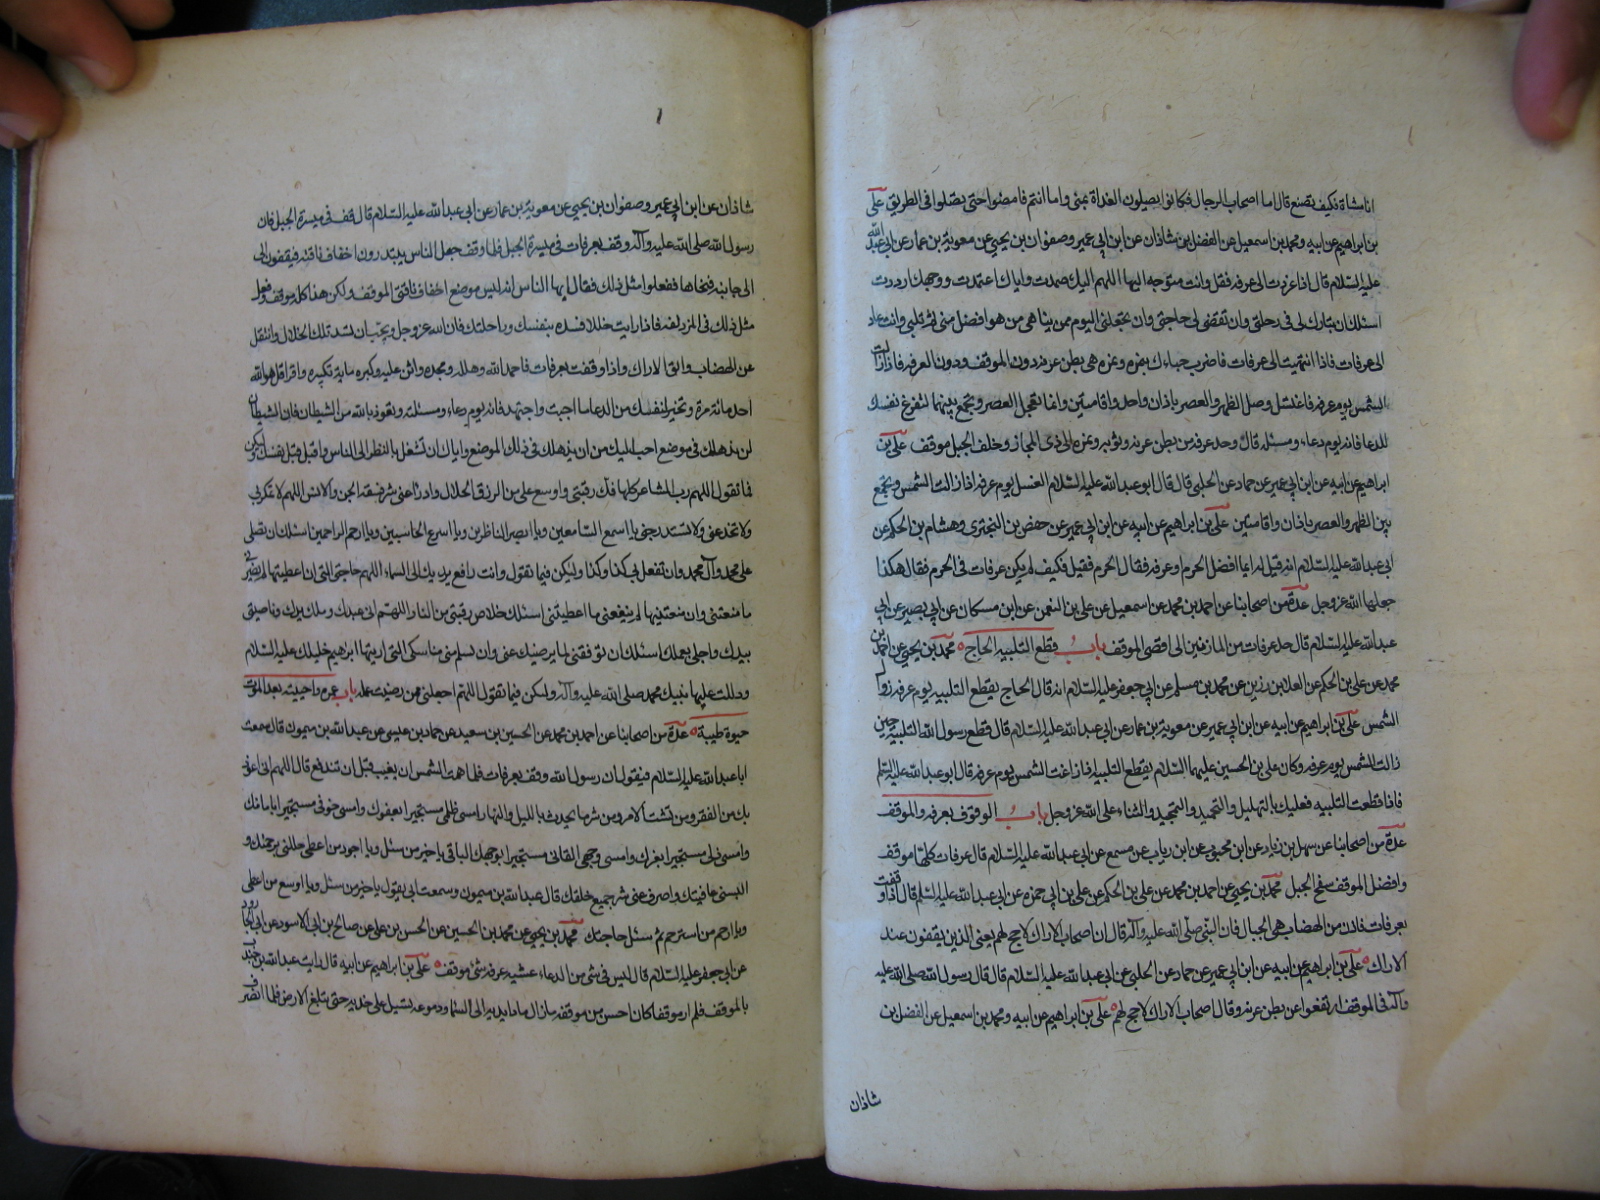 انا مشاة فكيف نصنع قال اما اصحاب الرحال فكانوا يصلون الغداة بمنى واما انتم فامضوا حتى تصلوا في الطريق علي
بن ابراهيم عن ابيه ومحمد بن اسمعيل عن الفضل بن شاذان عن ابن ابي عمير وصفوان بن يحيى عن معوية بن عمار عن ابي عبد الله
عليه السلام قال اذا غدوت الى عرفه فقل وانت متوجه اليها اللهم اليك صمدت واياك اعتمدت ووجهك اردت
اسئلك ان تبارك لي في رحلتي وان تقضي لي حاجتي وان تجعلني اليوم ممن تباهي من هو افضل مني ثم تلبي وانت غاد
الى عرفات فاذا انتهيت الى عرفات فاضرب خباءك بنمره ونمره هي بطن عرنه دون الموقف ودون العرفه فاذا زالت
الشمس يوم عرفه فاغتسل وصل الظهر والعصر باذان واحد واقامتين وانما تعجل العصر وتجمع بينهما لتفرغ نفسك
للدعا فانه يوم دعاء ومسئله قال وحد عرفه من بطن عرنه وثويه ونمره الى ذي المجاز وخلف الجبل موقف علي بن
ابراهيم عن ابيه عن ابن ابي عمير عن حماد عن الحلبي قال قال ابو عبد الله عليه السلام الغسل يوم عرفه اذا زالت الشمس وتجمع
بين الظهر والعصر باذان واقامتين علي بن ابراهيم عن ابيه عن ابن ابي عمير عن حفص بن البختري وهشام بن الحكم عن
ابي عبد الله عليه السلام انه قيل له ايما افضل الحرم او عرفه فقال الحرم فقيل فكيف لم يكن عرفات في الحرم فقال هكذا
جعلها الله عز وجل عدة من اصحابنا عن احمد بن محمد عن اسمعيل عن علي بن النعمن عن ابن مسكان عن ابي بصير عن ابي
عبد الله عليه السلام قال حد عرفات من المازمين الى اقصى الموقف باب قطع التلبيه الحاج محمد بن يحيى عن احمد بن
محمد عن علي بن الحكم عن العلا بن رزين عن محمد بن مسلم عن ابي جعفر عليه السلام انه قال الحاج يقطع التلبيه يوم عرفه زوال
الشمس علي بن ابراهيم عن ابيه عن ابن ابي عمير عن معوية بن عمار عن ابي عبد الله عليه السلام قال قطع رسول الله التلبيه حين
زالت الشمس يوم عرفه وكان علي بن الحسين عليهما السلام يقطع التلبيه اذا زاغت الشمس يوم عرفه قال ابو عبد الله عليه السلم
فاذا قطعت التلبيه فعليك بالتهليل والتحميد والتمجيد والثناء على الله عز وجل باب الوقوف بعرفه والموقف
عدة من اصحابنا عن سهل بن زياد عن ابن محبوب عن ابن رياب عن مسمع عن ابي عبد الله عليه السلام قال عرفات كلها موقف
وافضل الموقف سفح الجبل محمد بن يحيى عن احمد بن محمد عن علي بن الحكم عن علي بن ابي حمزه عن ابي عبد الله عليه السلم قال اذا وقفت
بعرفات فادن من الهضاب هي الجبال فان النبي صلى الله عليه وآله قال ان اصحاب الاراك لا حج لهم يعني الذين يقفون عند
الاراك علي بن ابراهيم عن ابيه عن ابن ابي عمير عن حماد عن الحلبي عن ابي عبد الله عليه السلام قال قال رسول الله صلى الله عليه
وآله في الموقف ارتفعوا عن بطن عرنه وقال اصحاب الاراك لا حج لهم علي بن ابراهيم عن ابيه ومحمد بن اسمعيل عن الفضل بن
شاذان
شاذان عن ابن ابي عمير وصفوان بن يحيى عن معوية بن عمار عن ابي عبد الله عليه السلام قال قف في ميسرة الجبل فان
رسول الله صلى الله عليه وآله وقف بعرفات في ميسرة الجبل فلما وقف جعل الناس يبتدرون اخفاف ناقته فيقفون الى
الى جانبه فنحاها ففعلوا مثل ذلك فقال ايها الناس انه ليس موضع اخفاف ناقتي الموقف ولكن هذا كله موقف وفعل
مثل ذلك في المزدلفه فاذا رايت خللا فسده بنفسك وراحلتك فان الله عز وجل يحب ان تسد تلك الخلال وانتقل
عن الهضاب واتق الاراك واذا وقفت بعرفات فاحمد الله وهلله ومجده واثن عليه وكبره مايه تكبيره واقرا قل هو الله
احد مائة مرة وتخير لنفسك من الدعا ما احببت واجتهد فانه يوم دعاء ومسئله وتعوذ بالله من الشيطان فان الشيطان
لن يذهلك في موضع احب اليك من ان يذهلك في ذلك الموضع واياك ان تشغل بالنظر الى الناس واقبل قبل نفسك وليكن
فما تقول اللهم رب المشاعر كلها فك رقبتي واوسع علي من الرزق الحلال وادرأ عني شر فسقه الجن والانس اللهم لا تمكر بي
ولا تخدعني ولا تستدرجني يا اسمع السامعين ويا ابصر الناظرين ويا اسرع الحاسبين ويا ارحم الراحمين اسئلك ان تصلى
على محمد وآل محمد وان تفعل بي كذا وكذا وليكن فيما تقول وانت رافع يديك الى السماء اللهم حاجتي التي ان اعطيتها لم يضرني
ما منعتني وان منعتنيها لم ينفعني ما اعطيتني اسئلك خلاص رقبتي من النار اللهم اني عبدك وملك يدك وناصيتي
بيدك واجلي بعلمك اسئلك ان توفقني لما يرضيك عني وان تسلم مني مناسكي التي اريتها ابراهيم خليلك عليه السلام
ودللت عليها نبيك محمد صلى الله عليه وآله وليكن فيما تقول اللهم اجعلني ممن رضيت عمله باب عمره واحييته بعد الموت
حيوة طيبة عدة من اصحابنا عن احمد بن محمد عن الحسين بن سعيد عن حماد بن عيسى عن عبد الله بن ميمون قال سمعت
ابا عبد الله عليه السلام فيقول ان رسول الله وقف بعرفات فلما همت الشمس ان يغيب قبل ان تندفع قال اللهم اني اعوذ
بك من الفقر ومن تشتت الامر ومن شر ما يحدث بالليل والنهار امسى ظلمي مستجيرا بعفوك وامسى خوفي مستجيرا بامانك
وامسى ذلي مستجيرا بعزك وامسى وجهي الفاني مستجيرا بوجهك الباقي يا خير من سئل ويا اجود من اعطى جللني برحمتك و
البسني عافيتك واصرف عني شر جميع خلقك قال عبد الله بن ميمون وسمعت ابي يقول يا خير من سئل ويا اوسع من اعطى
ويا ارحم من استرحم ثم سئل حاجتك محمد بن يحيى عن محمد بن الحسين عن الحسن بن علي عن صالح بن ابي الاسود عن ابي الجارود
عن ابي جعفر عليه السلام قال ليس في شئ من الدعاء عشيه عرفه شئ موقف علي بن ابراهيم عن ابيه قال رايت عبد الله بن جندب
بالموقف فلم ار موقفا كان احسن من موقفه ما زال مادا يديه الى السماء ودموعه يسيل على خديه حتى يبلغ الارض فلما انصرف